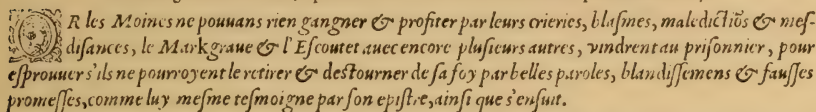 OR les Moines ne pouuans rien gangner & profiter par leurs crieries, blasmes, maledictiōs & mes-
disances, le Markgraue & l'Escoutet auec encore plusieurs autres, vindrent au prisonnier, pour
esprouuer s'ils ne pourroyent le retirer & destourner de sa foy par belles paroles, blandissemens & fausses
promesses, comme luy mesme tesmoigne par son epistre, ainsi que s'ensuit.